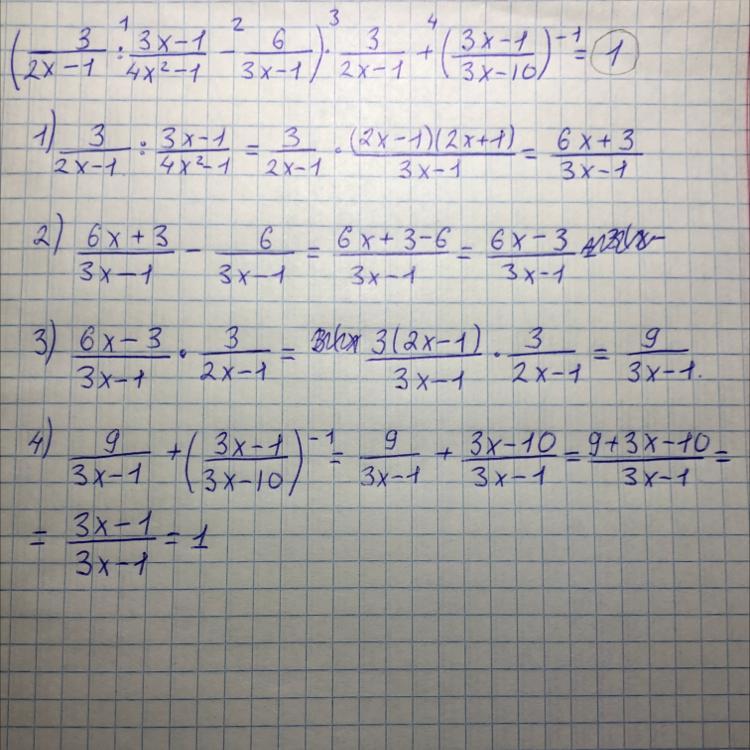 (3/(2x-1) :¹ (3x-1)/(4x²-1) -² 6/(3x-1)) ·³ 3/(2x-1) +⁴ ((3x-1)/(3x-10))⁻¹ = 1
1) 3/(2x-1) : (3x-1)/(4x²-1) = 3/(2x-1) · (2x-1)(2x+1)/(3x-1) = (6x+3)/(3x-1)
2) (6x+3)/(3x-1) - 6/(3x-1) = (6x+3-6)/(3x-1) = (6x-3)/(3x-1)
3) (6x-3)/(3x-1) · 3/(2x-1) = 3(2x-1)/(3x-1) · 3/(2x-1) = 9/(3x-1).
4) 9/(3x-1) + ((3x-1)/(3x-10))⁻¹ = 9/(3x-1) + (3x-10)/(3x-1) = (9+3x-10)/(3x-1) =
= (3x-1)/(3x-1) = 1